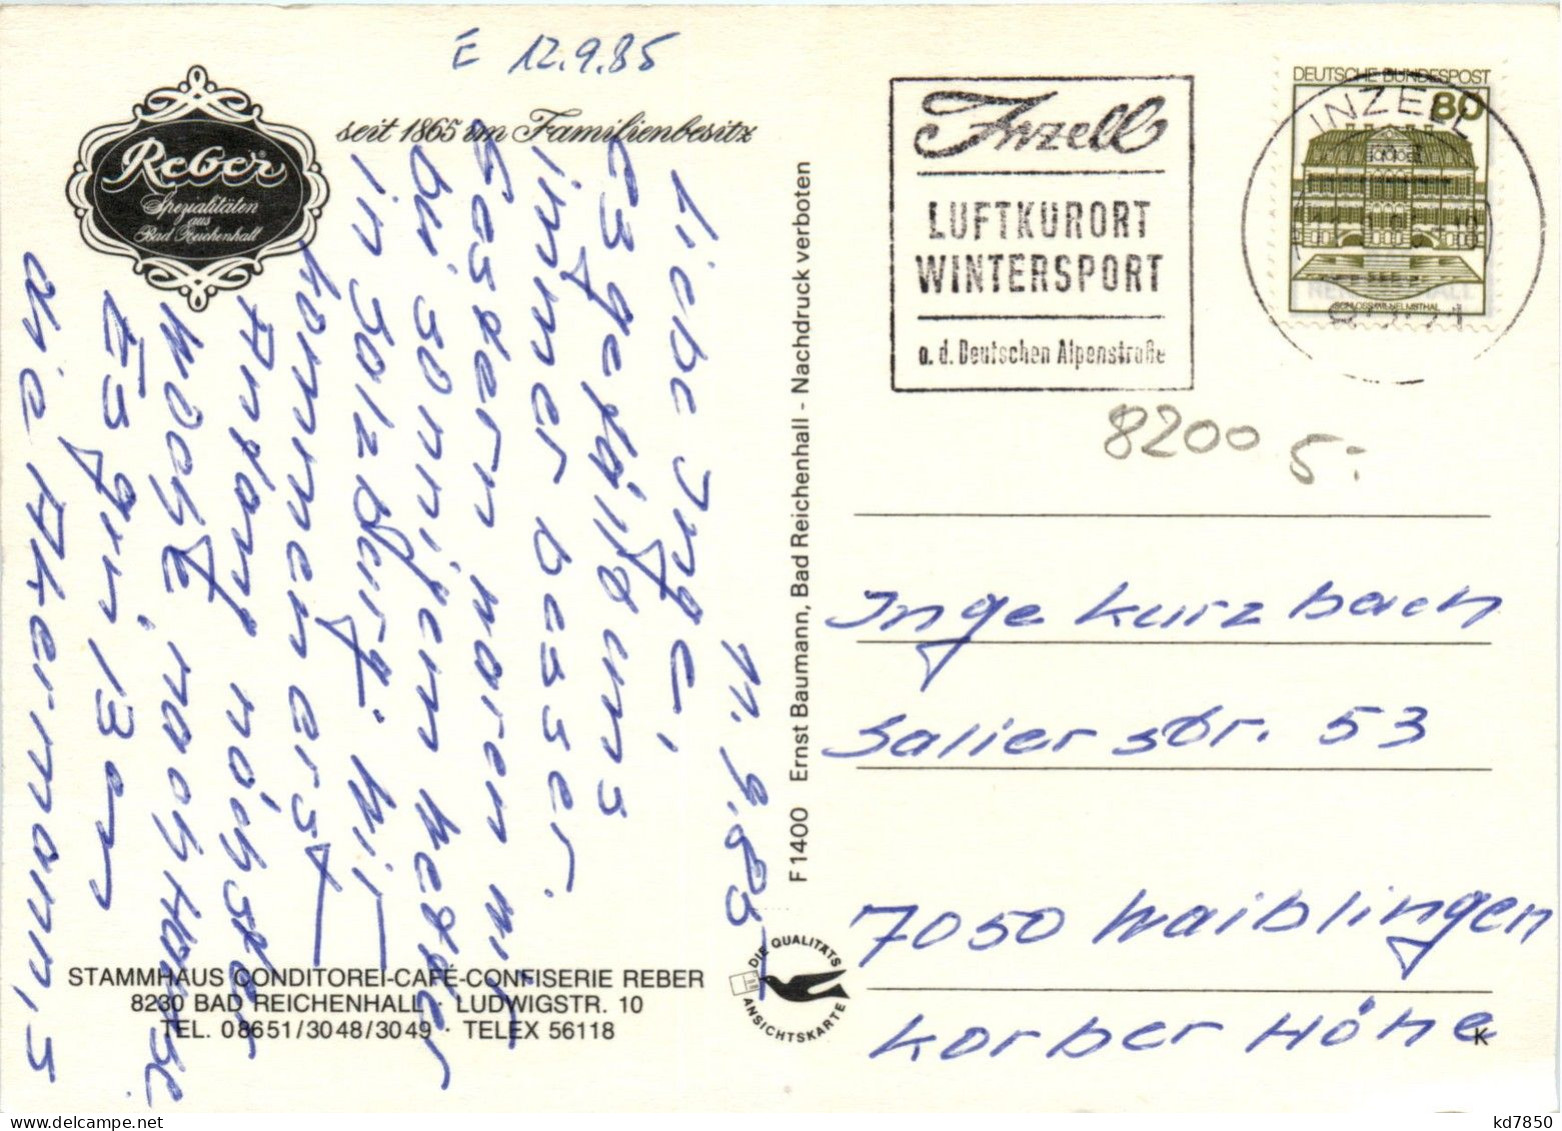 E 12.9.85
Reber
Spezialitäten
aus
Bad Reichenhall
seit 1865 im Familienbesitz
11.9.85
Liebe Inge,
Es gefällt uns
immer besser.
Gestern waren wir
bei sonnigem Wetter
in Salzburg. Wir
kommen erst
Anfang nächster
Woche, nach Hause.
Es grüßen
die Akermann,s
STAMMHAUS CONDITOREI-CAFÉ-CONFISERIE REBER
8230 BAD REICHENHALL · LUDWIGSTR. 10
TEL. 08651/3048/3049 · TELEX 56118
F 1400 Ernst Baumann, Bad Reichenhall - Nachdruck verboten
DIE QUALITÄTS
ANSICHTSKARTE
Inzell
LUFTKURORT
WINTERSPORT
a. d. Deutschen Alpenstraße
DEUTSCHE BUNDESPOST
80
INZELL
SCHLOSS WILHELMSTHAL
8221
8200 5:
Inge Kurzbach
Salierstr. 53
7050 Waiblingen
Korber Höhe
K
kd7850